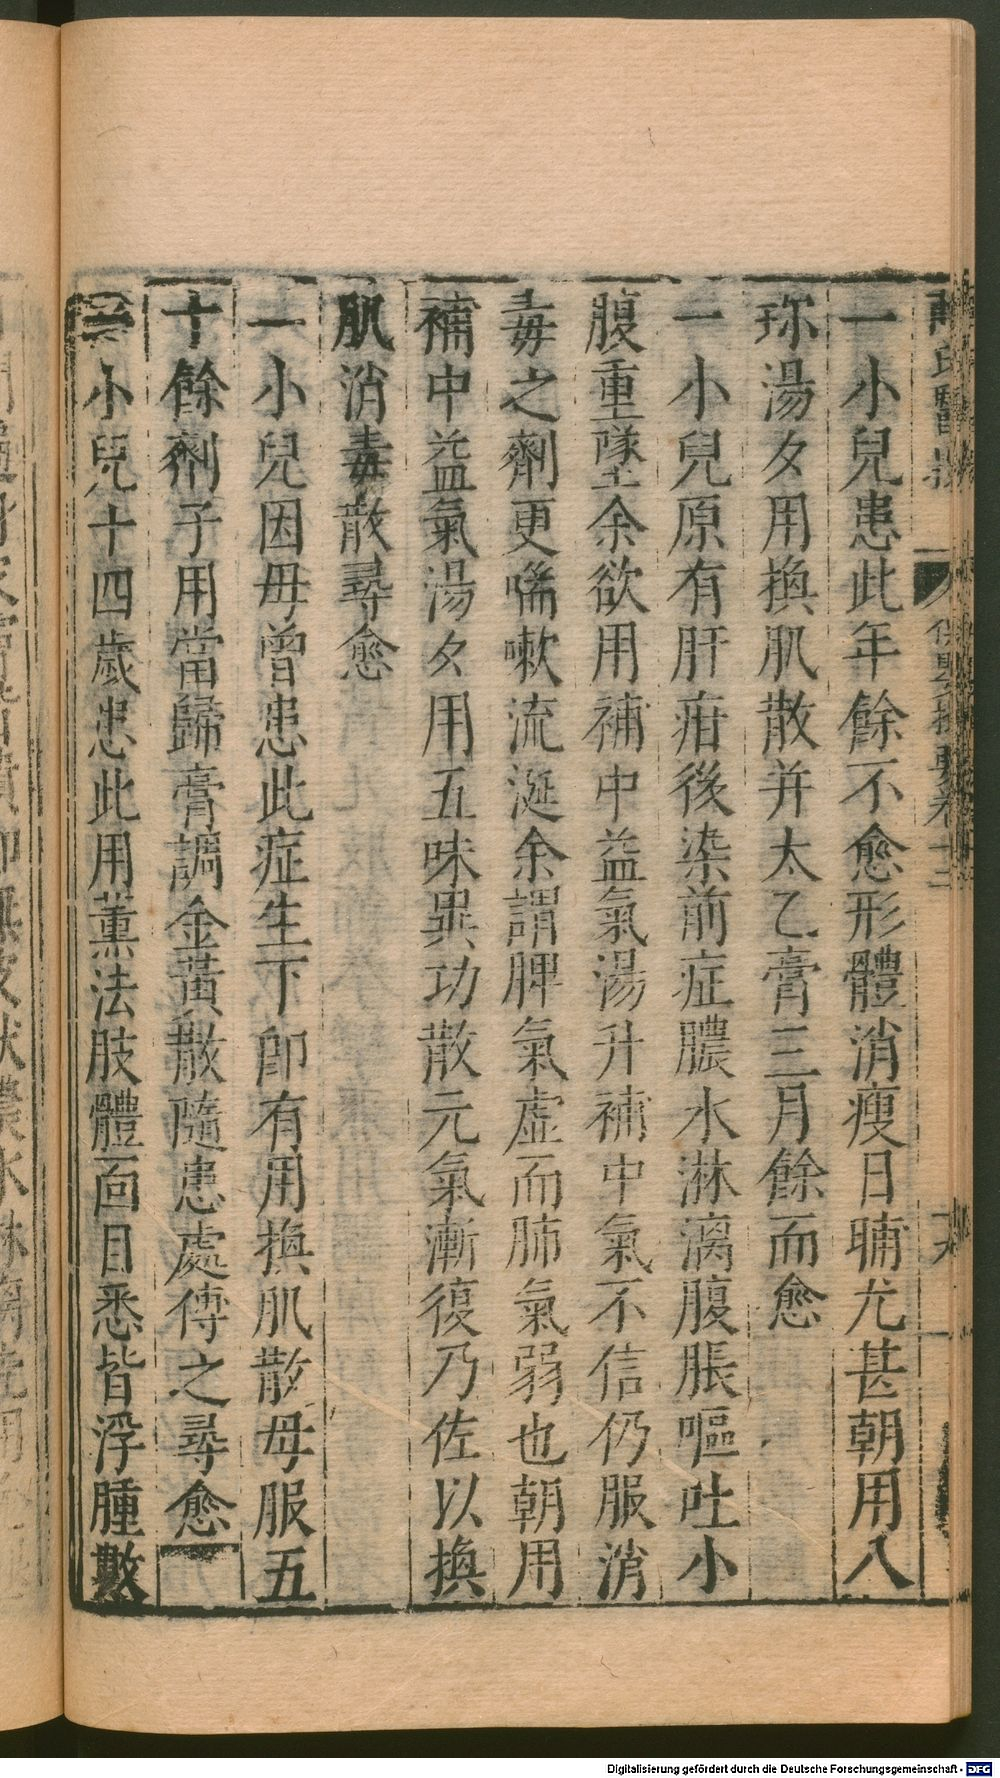 一小兒患此年餘不愈形體消瘦日晡尤甚朝用八
珎湯夕用換肌散并太乙膏三月餘而愈
一小兒原有肝疳後染前症膿水淋漓腹脹嘔吐小
腹重墜余欲用補中益氣湯升補中氣不信仍服消
毒之劑更喘嗽流涎余謂脾氣虛而肺氣弱也朝用
補中益氣湯夕用五味異功散元氣漸復乃佐以換
肌消毒散尋愈
一小兒因母曾患此症生下卽有用換肌散母服五
十餘劑子用當歸膏調金黃散隨患處傅之尋愈
一小兒十四歲患此用薰法肢體面目悉皆浮腫數
Digitalisierung gefördert durch die Deutsche Forschungsgemeinschaft - DFG